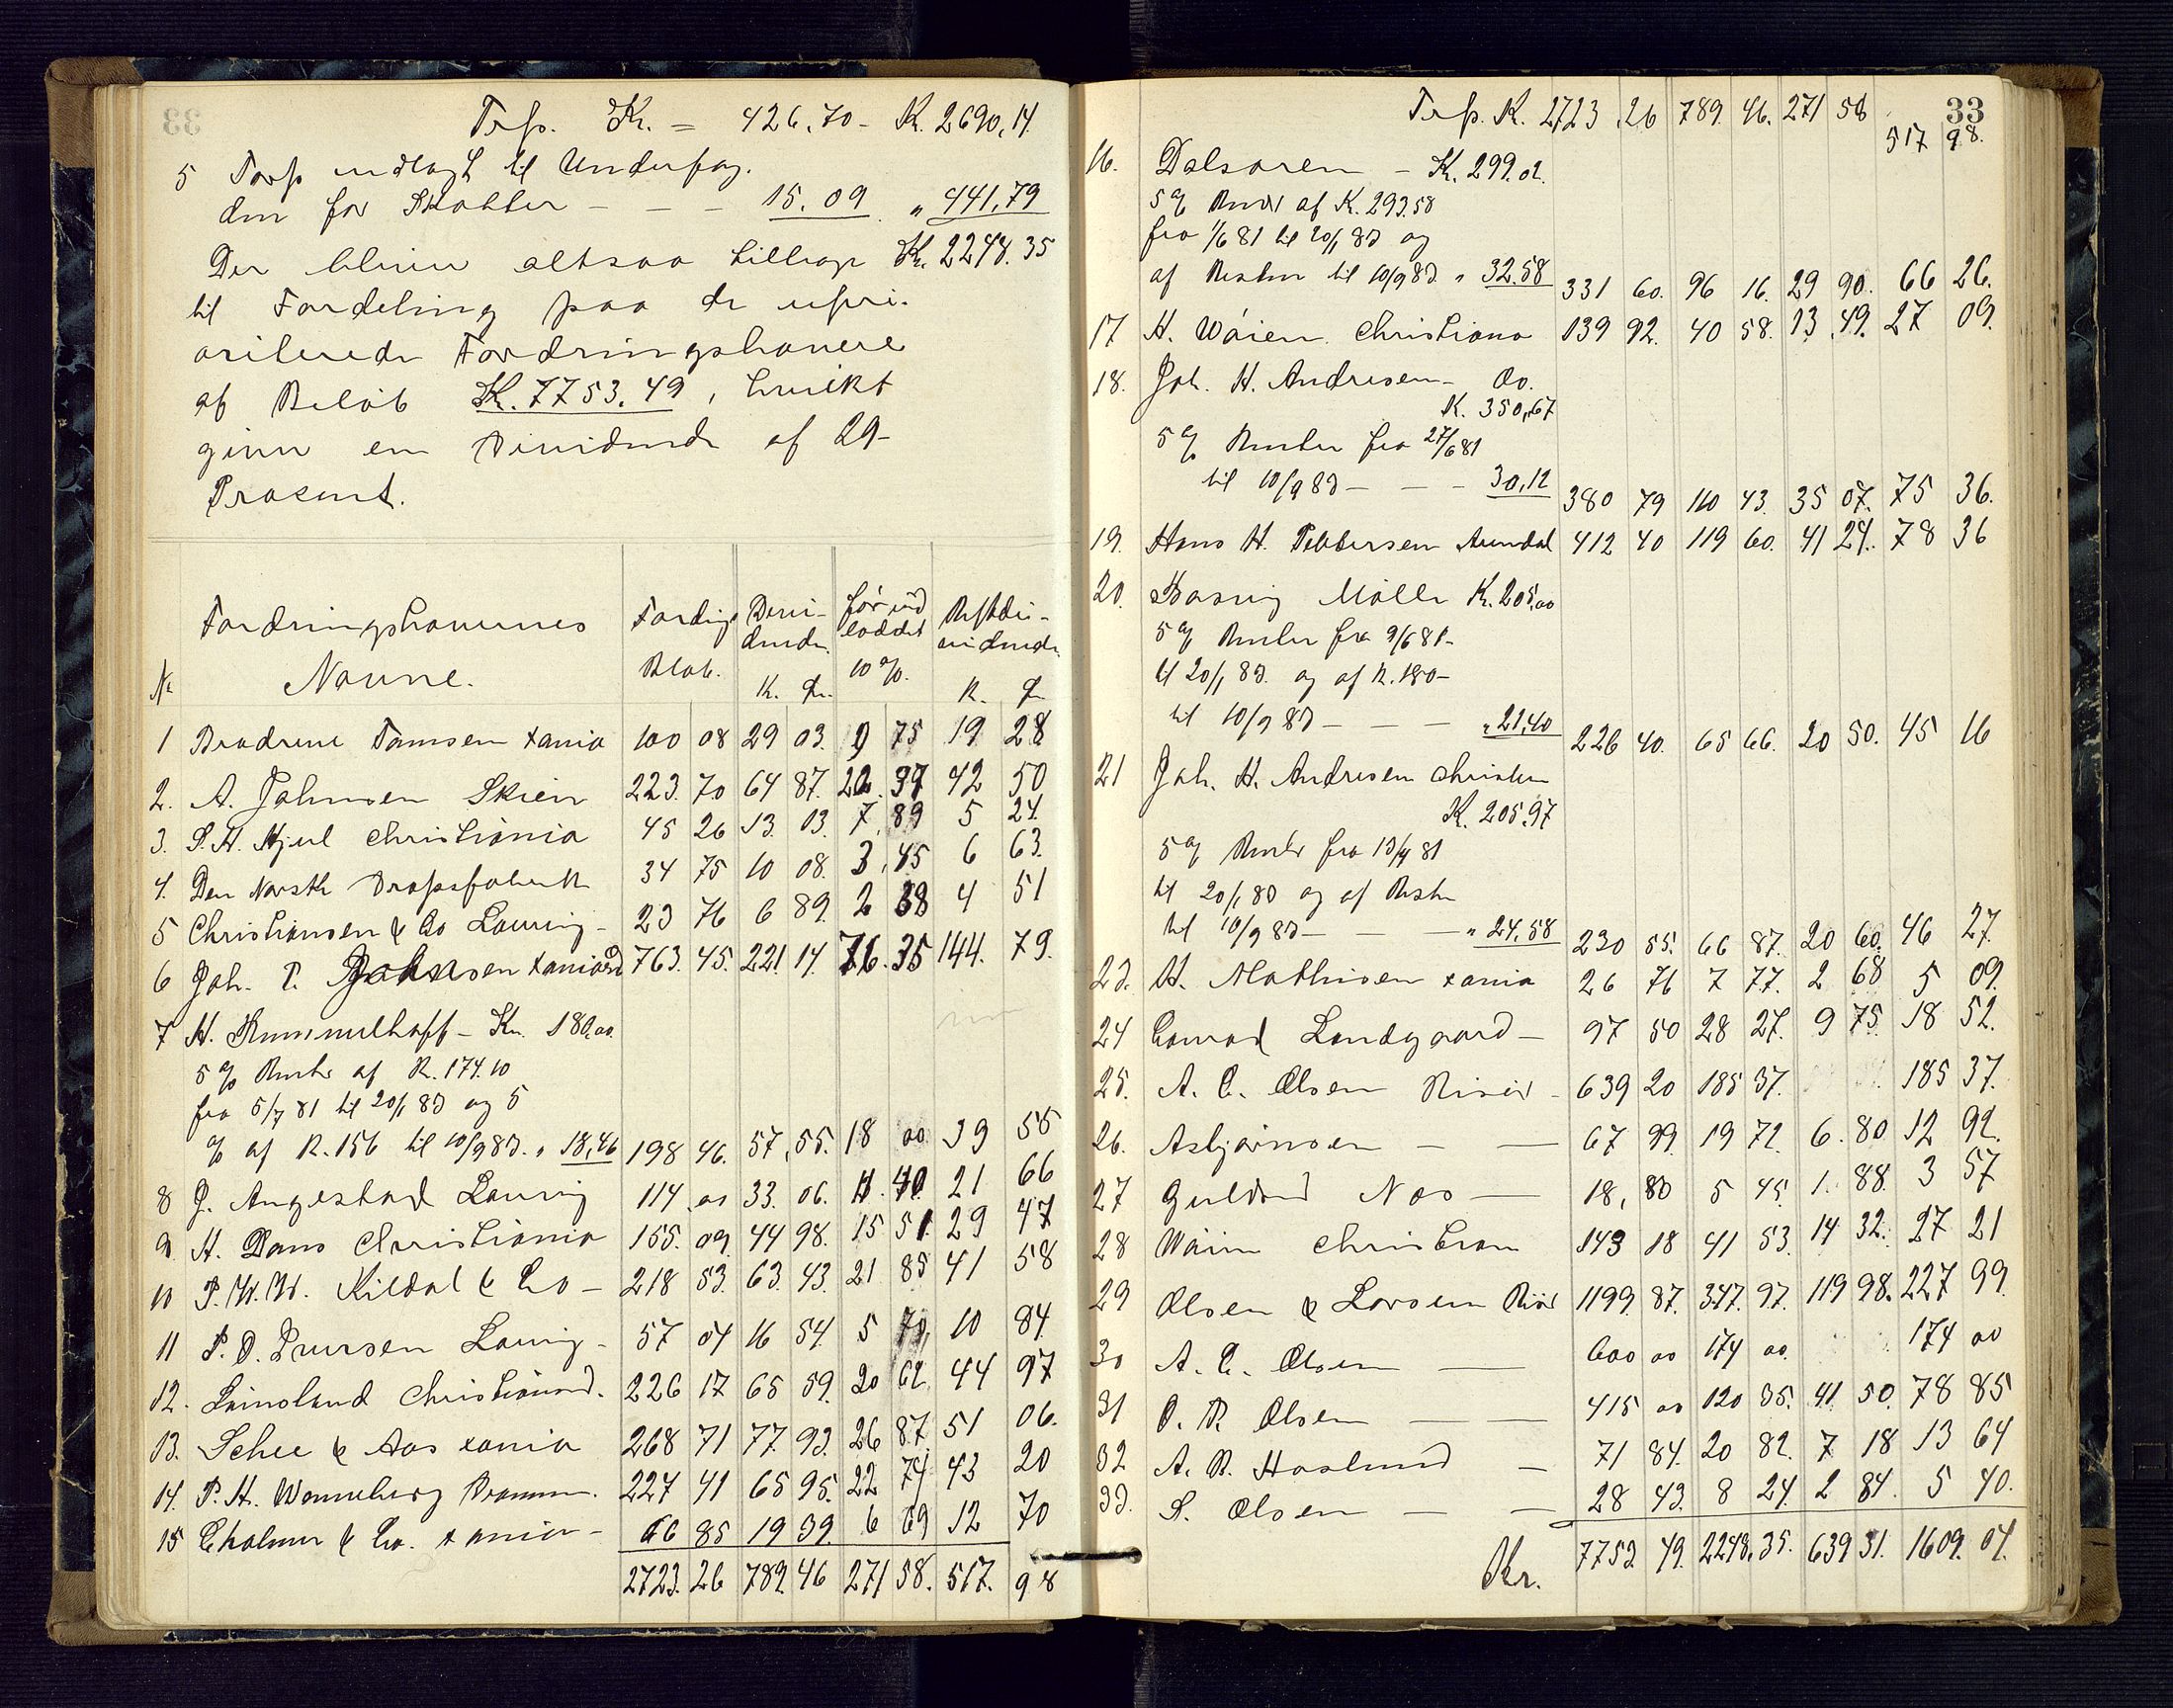 Trsp. Kr. = 426,70 - K. 2690,14.
5 Torp udlagt til Underfog.
den for Skatter - - - 15.09 " 441,79
Der bliver altsaa tillrage Kr. 2248.35
til Fordeling paa de upri-
oriterede Fordringshavere
af Beløb K. 7753.49, hvilket
giver en Dividende af 29-
Procent.
No Fordringshavernes Navne. Fordings Beløb. Divi-dende. K. Ø. forud loddet 10%. Restdi-vidende K. Ø.
1 Brødrene Tomsen Xania 100 08 29 03. 9 75 19 28
2. A. Johnsen Skien 223. 70 64 87. 22. 37 42 50
3. S. H. Hjul Christiania 45 26 13. 03. 7, 89 5 24.
4. Den Norske Dropsfabrik 34 75 10 08. 3, 45 6 63.
5 Christiansen & Co Laurvig - 23 76 6 89. 2 38 4 51
6 Joh. P. Johnsen Xaniasd 763. 45. 221. 14. 76. 35 144. 79.
7 H. Rummelhoff - Kr. 180,00.
5% Renter af K. 174.10
fra 5/7 81 til 20/1 83 og 5
% af K. 156 til 10/9 83. " 18,46 198 46. 57, 55. 18 00. 39 55
8 J. Angestad Laurvig 114. 00 33. 06. 11. 40. 21 66
9 H. Dans Christiania 155. 09. 44 98. 15 51. 29 47
10 P. W. W. Kildal & Co - 218 53. 63. 43. 21 85 41 58
11 P. D. Iversen Laurvig - 57 04 16 54. 5 70, 10 84.
12. Leinsland Christiansd. 226 17 65 59. 20 62 44 97
13. Schee & Aas Xania 268 71 77. 93. 26 87. 51 06.
14. P. H. Wanneberg Drammen. 227 41 65 95. 22 74. 43 20
15 Ekolmer & Co. Xania - 66 85 19 39. 6 69 12 70
2723. 26 789. 46 271 58. 517. 98
33
Trsp. K. 2723. 26 789. 46. 271 58 517 98.
16. Dalsaren - K. 299.02.
5% Renter af K. 293.58
fra 1/6 81 til 20/1 83 og
af Resten til 10/9 83 " 32.58 331 60. 96 16. 29 90. 66 26.
17 H. Wøien Christiania 139 92. 40 58. 13. 49. 27 09.
18. Joh. H. Andresen - Do.
K. 350,67
5% Renter fra 27/6 81
til 10/9 83 - - - 30,12 380 79 110 43. 35 07. 75 36.
19. Hans H. Pettersen Arendal 412 40 119 60. 41 24. 78 36
20. Møller K. 205,00
5% Renter fra 9/6 81 -
til 20/1 83. og af K. 180 -
til 10/9 83 - - - " 21,40 226 40. 65 66. 20 50. 45 16
21 Joh. H. Andresen Christia
K. 205.97
5% Renter fra 13/4 81
til 20/1 83 og af Resten
til 10/9 83 - - - " 24,58 230 55. 66 87. 20 60. 46 27.
23. H. Mathisen Xania 26 76 7 77. 2 68 5 09.
24 Conrad Landgaard - 97 50 28 27. 9 75. 18 52.
25. A. C. Olsen Risør - 639 20 185 37. 185 37.
26. Asbjørnsen - - 67 99. 19 72. 6. 80 12 92.
27 Guldbrand Næs - 18, 80 5 45. 1. 88. 3 57
28 Wøien Christiania 143 18 41 53. 14 32. 27 21
29 Olsen & Larsen Risør 1199. 87. 347. 97. 119 98. 227 99.
30 A. C. Olsen - 600 00 174 00. 174 00
31 O. B. Olsen - - 415 00 120 35. 41 50. 78 85
32 A. B. Haslund - 71 84. 20 82. 7 18 13 64
33. S. Olsen - - 28 43. 8 24. 2 84. 5 40.
Kr. 7752 49. 2248. 35. 639 31. 1609. 04.